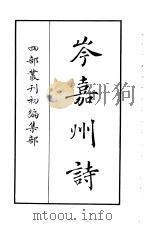 岑嘉州詩
四部叢刊初編集部
mtoou.info